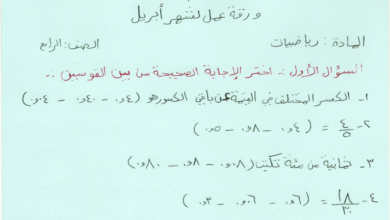 ورقة عمل لشهر أبريل
المادة: رياضيات الصف: الرابع
السؤال الأول:- اختر الإجابة الصحيحة من بين القوسين :-
١- الكسر المختلف في القيمة عن باقي الكسور هو (٤و. - ٤٠و. - ٠٤و.)
٢- ٤/٥ = (٤و. - ٨و. - ٥و.)
٣- ثمانية من مئة تكتب (٠٨و. - ٨و. - ٨٠و.)
٤- ١٨/٣٠ = (٦و. - ٠٦و. - ٣و.)